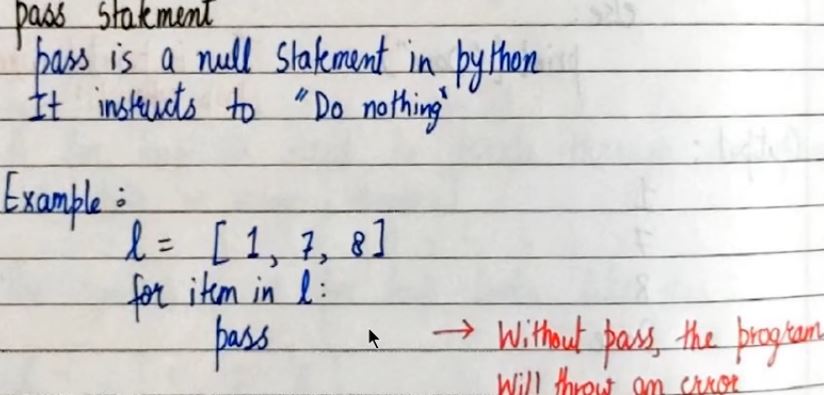 pass statement
pass is a null statement in python
It instructs to "Do nothing"
Example :
l = [ 1, 7, 8 ]
for item in l :
pass → Without pass, the program
will throw an error